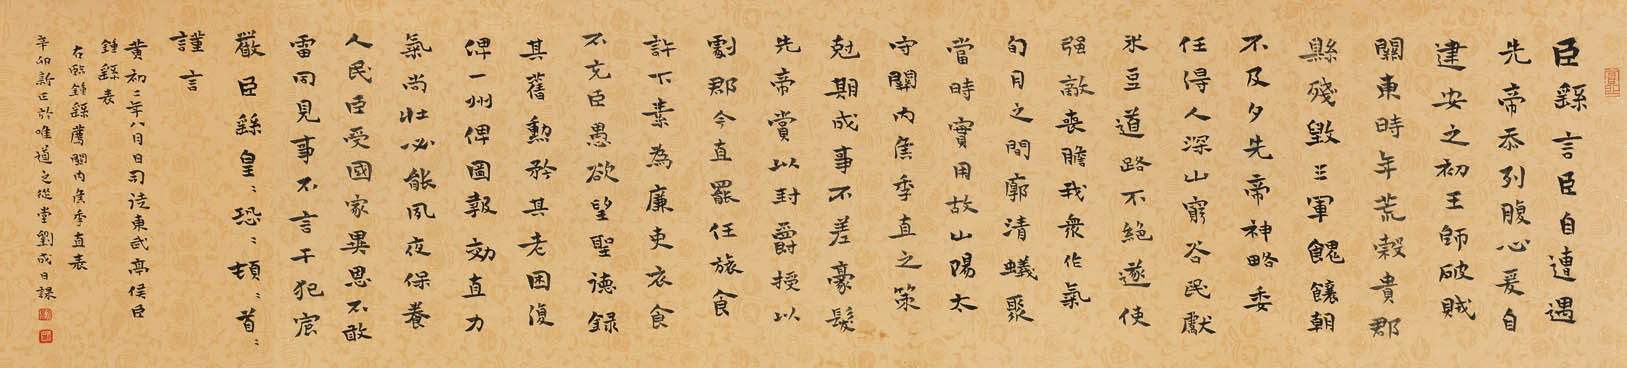 臣繇言臣自遭遇
先帝忝列腹心爰自
建安之初王師破賊
關東時年荒穀貴郡
縣殘毀三軍餽饟朝
不及夕先帝神略委
任得人深山窮谷民獻
米豆道路不絕遂使
强敵喪膽我衆作氣
旬月之間廓清蟻聚
當時實用故山陽太
守關內侯季直之策
尅期成事不差豪髮
先帝賞以封爵授以
劇郡今直罷任旅食
許下素為廉吏衣食
不充臣愚欲望聖德錄
其舊勳矜其老困復
俾一州俾圖報効直力
氣尚壯必能夙夜保養
人民臣受國家異恩不敢
雷同見事不言干犯宸
嚴臣繇皇〻恐〻頓〻首〻
謹言
黃初二年八月日司徒東武亭侯臣
鍾繇表
右臨鍾繇薦關內侯季直表
辛卯新正於唯道之從堂劉成日課